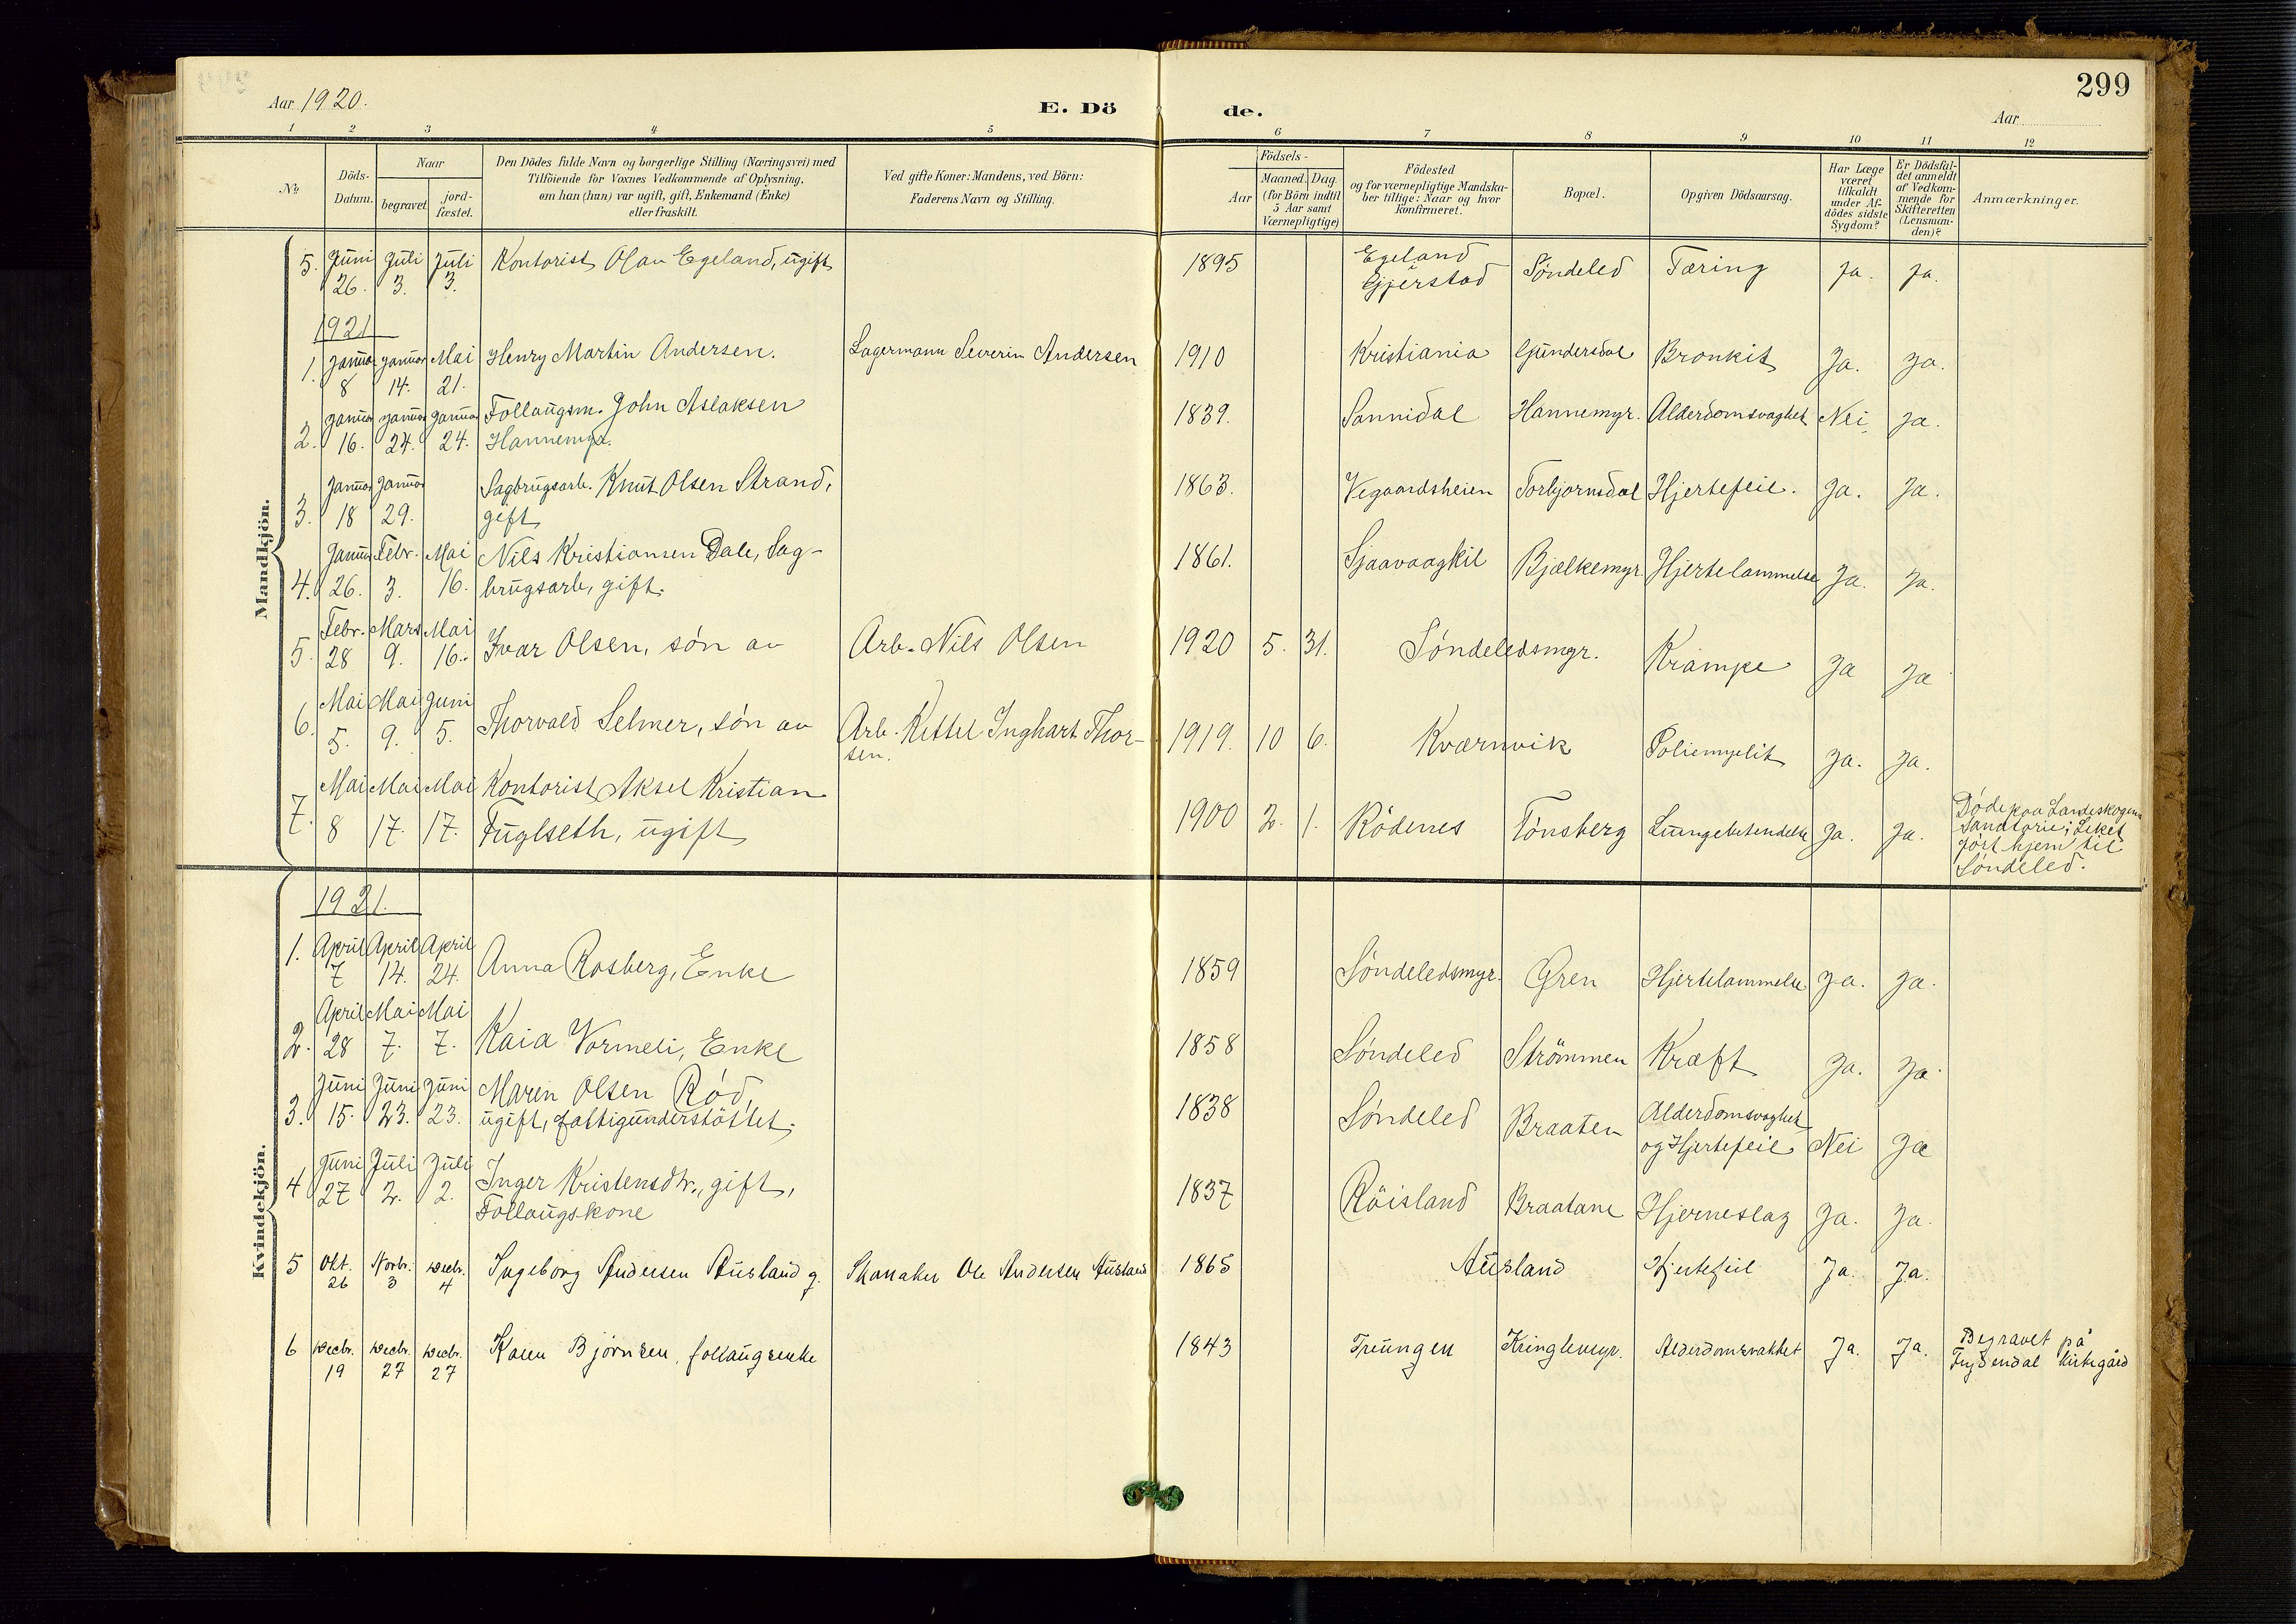 299
Aar 1920.
E. Dö de.
Aar
1 2 3 4 5 6 7 8 9 10 11 12
No
Döds-Datum.
Naar
begravet.
jord-fæstet.
Den Dödes fulde Navn og borgerlige Stilling (Næringsvei) med
Tilföiende for Voxnes Vedkommende af Oplysning,
om han (hun) var ugift, gift, Enkemand (Enke)
eller fraskilt.
Ved gifte Koner: Mandens, ved Börn:
Faderens Navn og Stilling.
Födsels-
Aar
Maaned. Dag.
(for Börn indtil
5 Aar samt
Værnepligtige)
Födested
og for værnepligtige Mandska-
ber tillige: Naar og hvor
konfirmeret.
Bopæl.
Opgiven Dödsaarsag.
Har Læge
været
tilkaldt
under Af-
dödes sidste
Sygdom?
Er Dödsfal-
det anmeldt
af Vedkom-
mende for
Skifteretten
(Lensman-
den)?
Anmærkninger.
Mandkjön.
5. Juni 26. Juli 3. Juli 3. Kontorist Olav Egeland, ugift 1895 Egeland Gjerstad Söndeled Tæring Ja. Ja.
1921
1. Januar 8 Januar 14. Mai 21. Henry Martin Andersen. Lagermann Severin Andersen 1910 Kristiania Gundersdal Bronkit Ja. Ja.
2. Januar 16. Januar 24. Januar 24. Follaugsm. John Aslaksen
Hannemyr. 1839. Sannidal Hannemyr. Alderdomsvaghet Nei. Ja.
3. Januar 18 Januar 29. Sagbrugsarb. Knut Olsen Strand,
gift 1863. Vegaardsheien Torbjornsdal Hjertefeil. Ja. Ja.
4. Januar 26. Febr. 3. Mai 16. Nils Kristiansen Dale, Sag-
brugsarb, gift. 1861. Sjaavaagkil Bjælkemyr. Hjertelammelse Ja. Ja.
5. Febr. 28 Mars 9. Mai 16. Ivar Olsen, sön av Arb. Nils Olsen 1920 5. 31. Söndeledsmyr. Krampe Ja Ja
6. Mai 5. Mai 9. Juni 5. Thorvald Selmer, sön av Arb. Kittel Inghart Thor-
sen. 1919. 10 6. Kværnvik Poliemyelit Ja. Ja.
7. Mai 8 Mai 17. Mai 17. Kontorist Aksel Kristian
Fuglseth, ugift 1900 2. 1. Rödenes Tönsberg Lungebetendelse Ja. Ja. Döde paa Landeskogens
Sanatorie; Liket
fört hjem til
Söndeled.
Kvindekjön.
1921.
1. April 7 April 14. April 24. Anna Rosberg, Enke 1859 Söndeledsmyr. Gren Hjertelammelse Ja. Ja.
2. April 28 Mai 7. Mai 7. Kaia Vormeli, Enke 1858 Söndeled Strömmen Kræft Ja. Ja.
3. Juni 15. Juni 23. Juni 23. Maren Olsen Röd,
ugift, fattigunderstöttet. 1838 Söndeled Braaten Alderdomsvaghet
og Hjertefeil Nei Ja
4 Juni 27 Juli 2. Juli 2. Inger Kristensdtr., gift,
Follaugskone 1837 Röisland Braatane Hjerneslag Ja. Ja.
5 Okt. 26 Novbr. 3 Decbr. 4 Ingeborg Andersen Ausland g. Skomaker Ole Andersen Ausland 1865 Ausland Hjertefeil Ja. Ja.
6 Decbr. 19 Decbr. 27 Decbr. 27 Karen Björnsen, follaugsenke 1843 Treungen Kringlemyr. Alderdomsvakhet Ja. Ja. Begravet på
Frydendal kirkegård